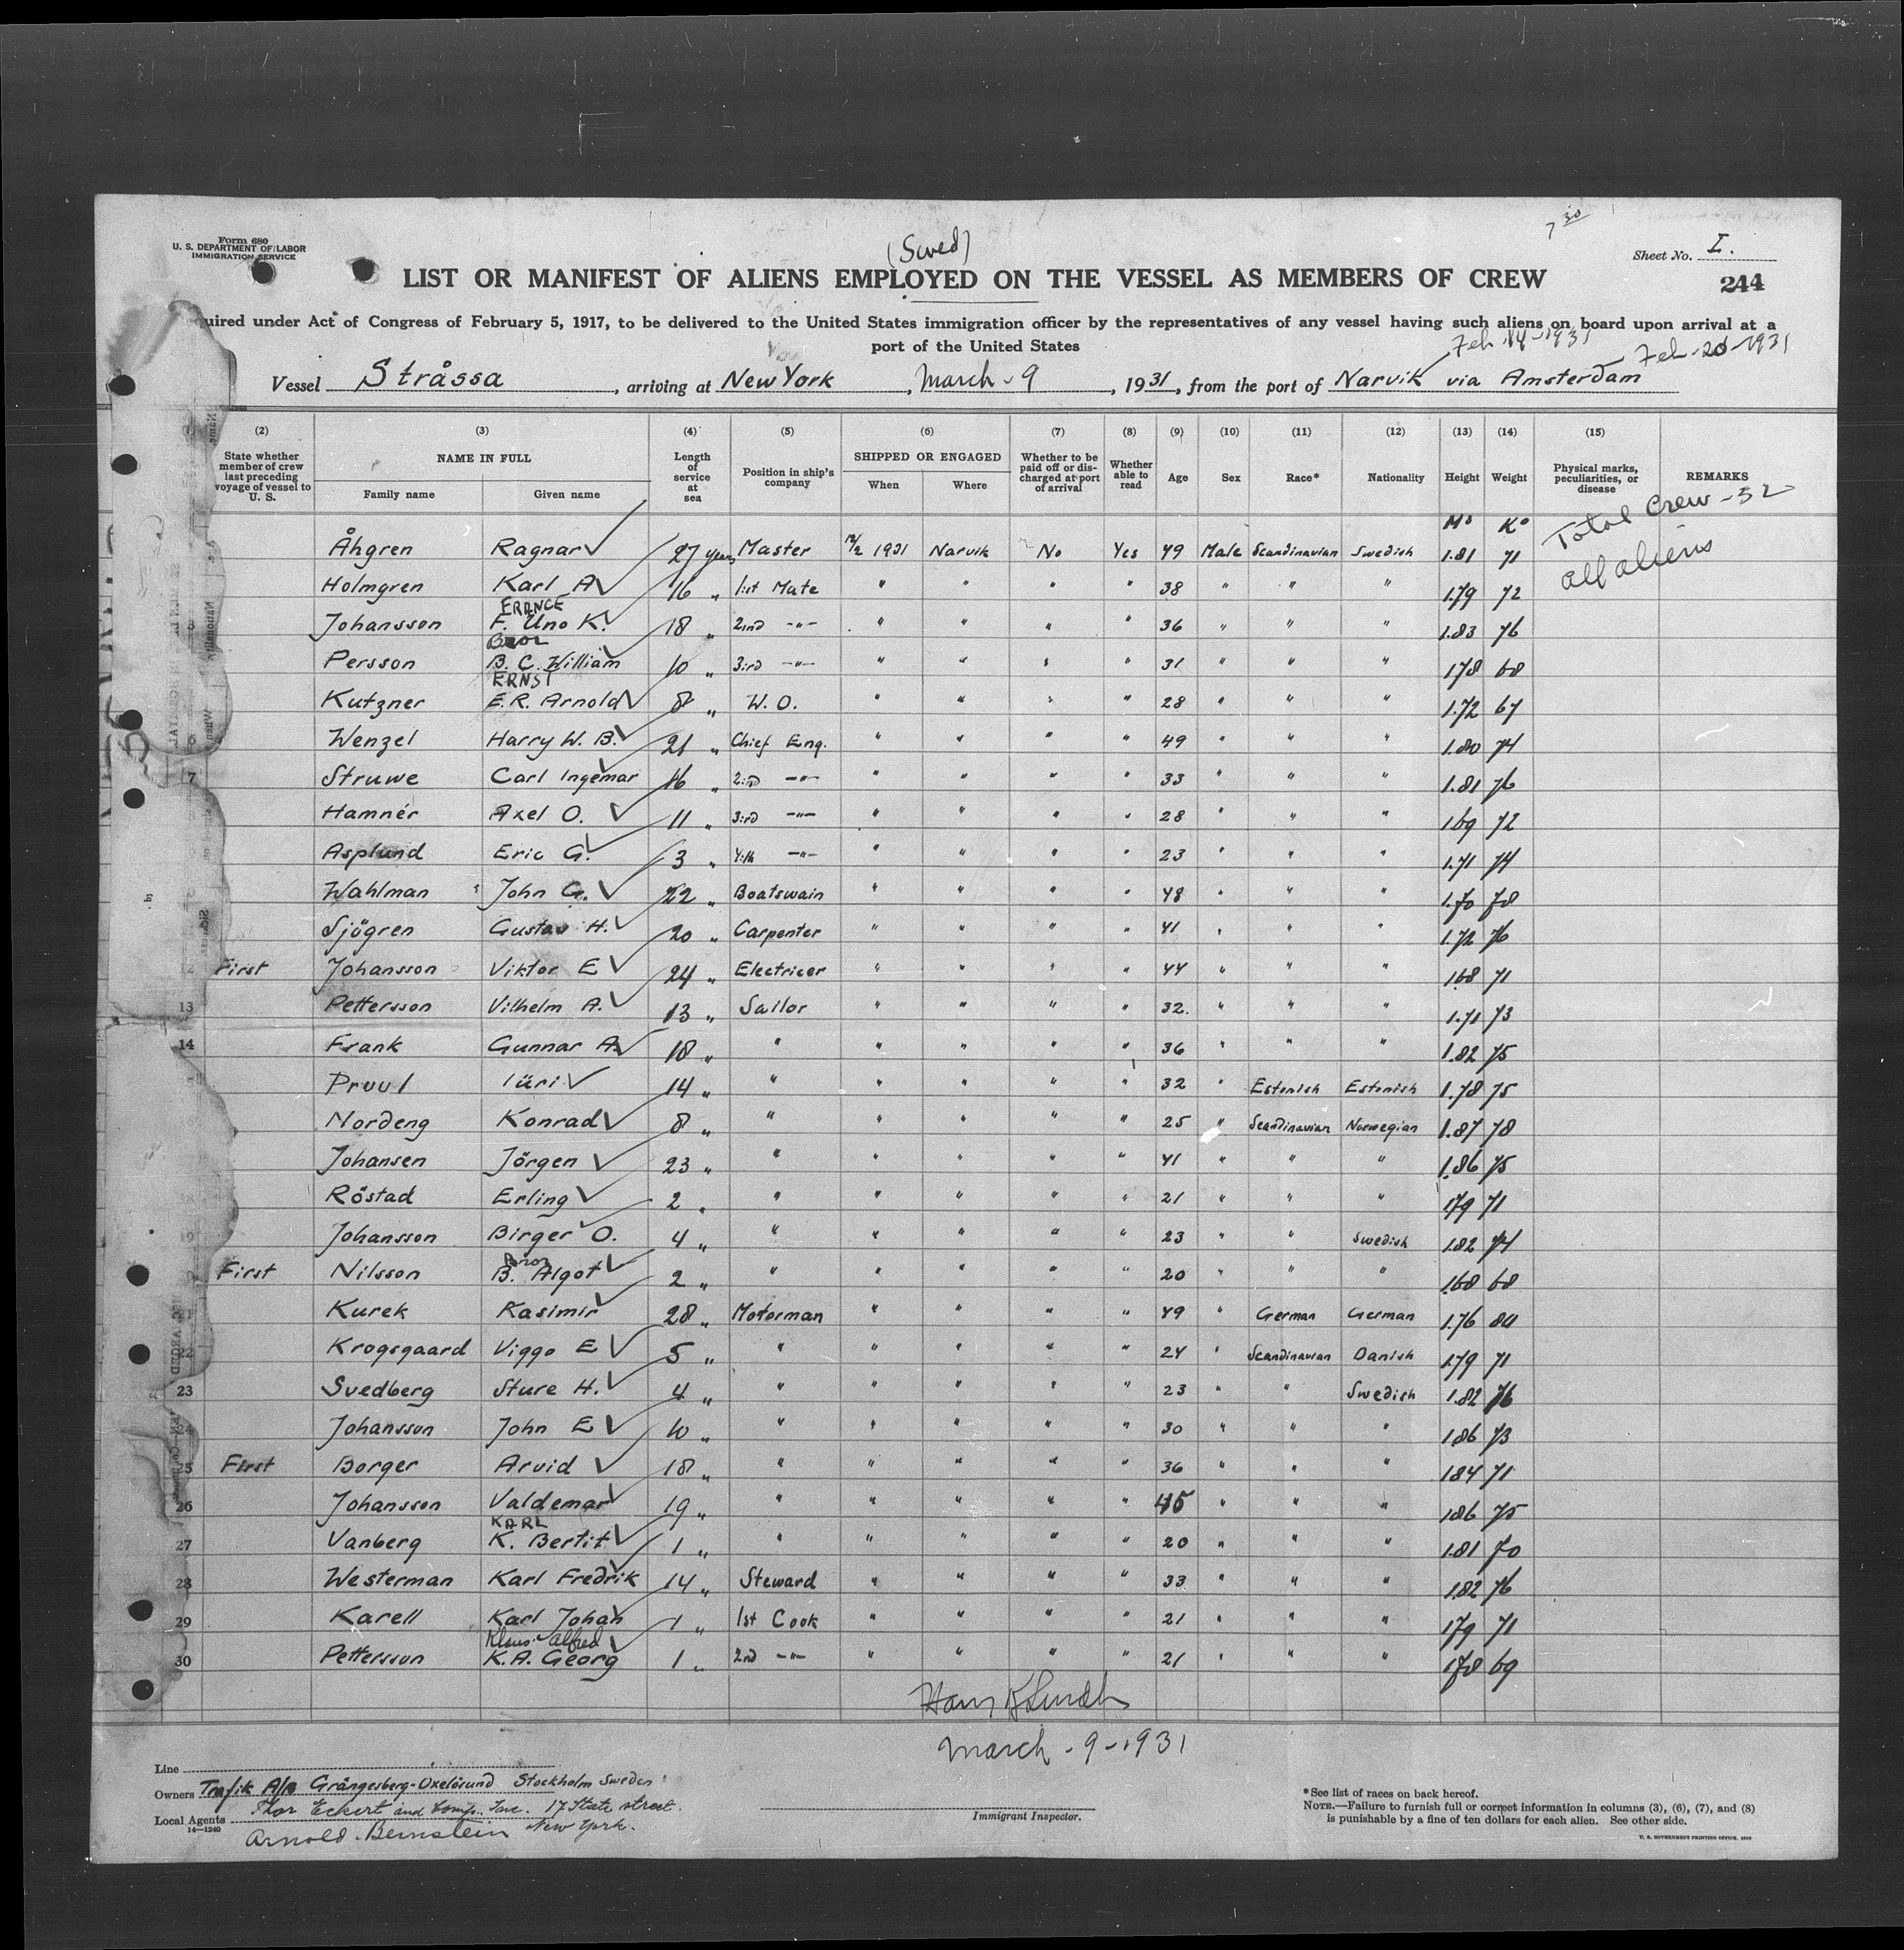 7 30
Form 680
U. S. DEPARTMENT OF LABOR
IMMIGRATION SERVICE
(Swed)
Sheet No. I.
LIST OR MANIFEST OF ALIENS EMPLOYED ON THE VESSEL AS MEMBERS OF CREW
244
uired under Act of Congress of February 5, 1917, to be delivered to the United States immigration officer by the representatives of any vessel having such aliens on board upon arrival at a
port of the United States
Feb. 14-1931 Feb-20-1931
Vessel Stråssa, arriving at New York, March-9, 1931, from the port of Narvik via Amsterdam
(2) (3) (4) (5) (6) (7) (8) (9) (10) (11) (12) (13) (14) (15)
State whether member of crew last preceding voyage of vessel to U. S. NAME IN FULL Family name Given name Length of service at sea Position in ship's company SHIPPED OR ENGAGED When Where Whether to be paid off or discharged at port of arrival Whether able to read Age Sex Race* Nationality Height Weight Physical marks, peculiarities, or disease REMARKS
Total Crew - 32
all aliens
Åhgren Ragnar 27 years Master 12/2 1931 Narvik No Yes 49 Male Scandinavian Swedish 1.81 71
Holmgren Karl A 16 " 1:st Mate " " " " 38 " " " 1.79 72
FRANCE
Johansson F. Uno K. 18 " 2:nd -"- " " " " 36 " " " 1.83 76
Bror
Persson B. C. William 10 " 3:rd -"- " " " " 31 " " " 1.78 68
ERNST
Kutzner E. R. Arnold 8 " W. O. " " " " 28 " " " 1.72 67
Wenzel Harry W. B. 21 " Chief Eng. " " " " 49 " " " 1.80 74
7 Struwe Carl Ingemar 16 " 2:nd -"- " " " " 33 " " " 1.81 76
Hamnér Axel O. 11 " 3:rd -"- " " " " 28 " " " 1.69 72
Asplund Eric G. 3 " 4:th -"- " " " " 23 " " " 1.71 74
Wahlman John G. 22 " Boatswain " " " " 48 " " " 1.70 78
Sjögren Gustav H. 20 " Carpenter " " " " 41 " " " 1.72 76
12 First Johansson Viktor E 24 " Electricer " " " " 44 " " " 1.68 71
13 Pettersson Vilhelm A. 13 " Sailor " " " " 32 " " " 1.71 73
14 Frank Gunnar A. 18 " " " " " " 36 " " " 1.82 75
Pruul Iüri 14 " " " " " " 32 " Estonish Estonish 1.78 75
Nordeng Konrad 8 " " " " " " 25 " Scandinavian Norwegian 1.87 78
Johansen Jörgen 23 " " " " " " 41 " " " 1.86 75
Röstad Erling 2 " " " " " " 21 " " " 1.79 71
19 Johansson Birger O. 4 " " " " " " 23 " " Swedish 1.82 74
Bror
First Nilsson B. Algot 2 " " " " " " 20 " " " 1.68 68
21 Kurek Kasimir 28 " Motorman " " " " 49 " German German 1.76 80
22 Krogsgaard Viggo E 5 " " " " " " 24 " Scandinavian Danish 1.79 71
23 Svedberg Sture H. 4 " " " " " " 23 " " Swedish 1.82 76
24 Johansson John E 10 " " " " " " 30 " " " 1.86 73
25 First Borger Arvid 18 " " " " " " 36 " " " 1.84 71
26 Johansson Valdemar 19 " " " " " " 45 " " " 1.86 75
KARL
27 Vanberg K. Bertil 1 " " " " " " 20 " " " 1.81 70
28 Westerman Karl Fredrik 14 " Steward " " " " 33 " " " 1.82 76
29 Karell Karl Johan 1 " 1st Cook " " " " 21 " " " 1.79 71
Klaus Alfred
30 Pettersson K. A. Georg 1 " 2nd -"- " " " " 21 " " " 1.78 69
March - 9 - 1931
Line
Owners Trafik A/B Grängesberg-Oxelösund Stockholm Sweden
Local Agents Thor Eckert and Comp. Inc. 17 State street.
Arnold Bernstein New York.
14—1240
Immigrant Inspector.
* See list of races on back hereof.
NOTE.—Failure to furnish full or correct information in columns (3), (6), (7), and (8)
is punishable by a fine of ten dollars for each alien. See other side.